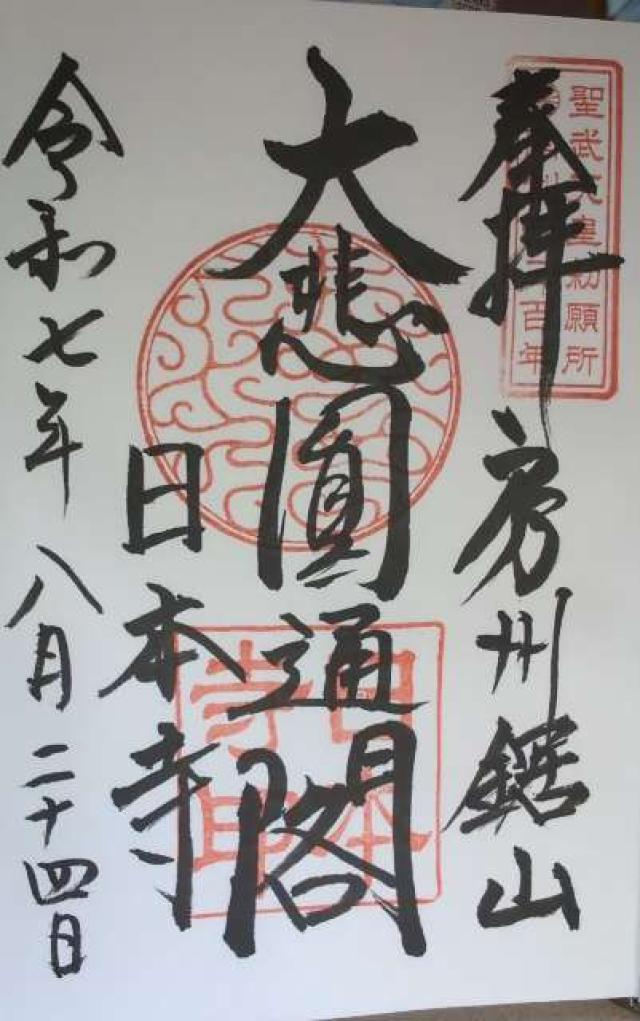 奉拝
聖武天皇勅願所
百年
房州鋸山
大悲圓通閣
日本寺
日本寺印
令和七年八月二十四日